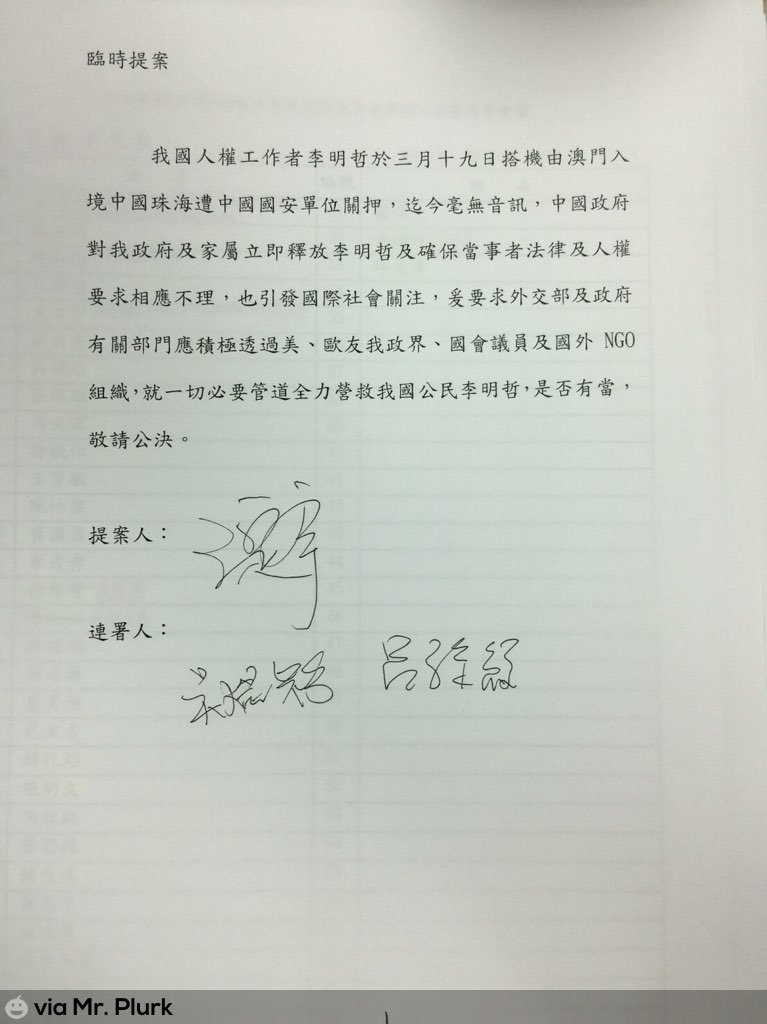 臨時提案
我國人權工作者李明哲於三月十九日搭機由澳門入
境中國珠海遭中國國安單位關押，迄今毫無音訊，中國政府
對我政府及家屬立即釋放李明哲及確保當事者法律及人權
要求相應不理，也引發國際社會關注，爰要求外交部及政府
有關部門應積極透過美、歐友我政界、國會議員及國外 NGO
組織，就一切必要管道全力營救我國公民李明哲，是否有當，
敬請公決。
提案人：
連署人：
呂孫綾
via Mr. Plurk